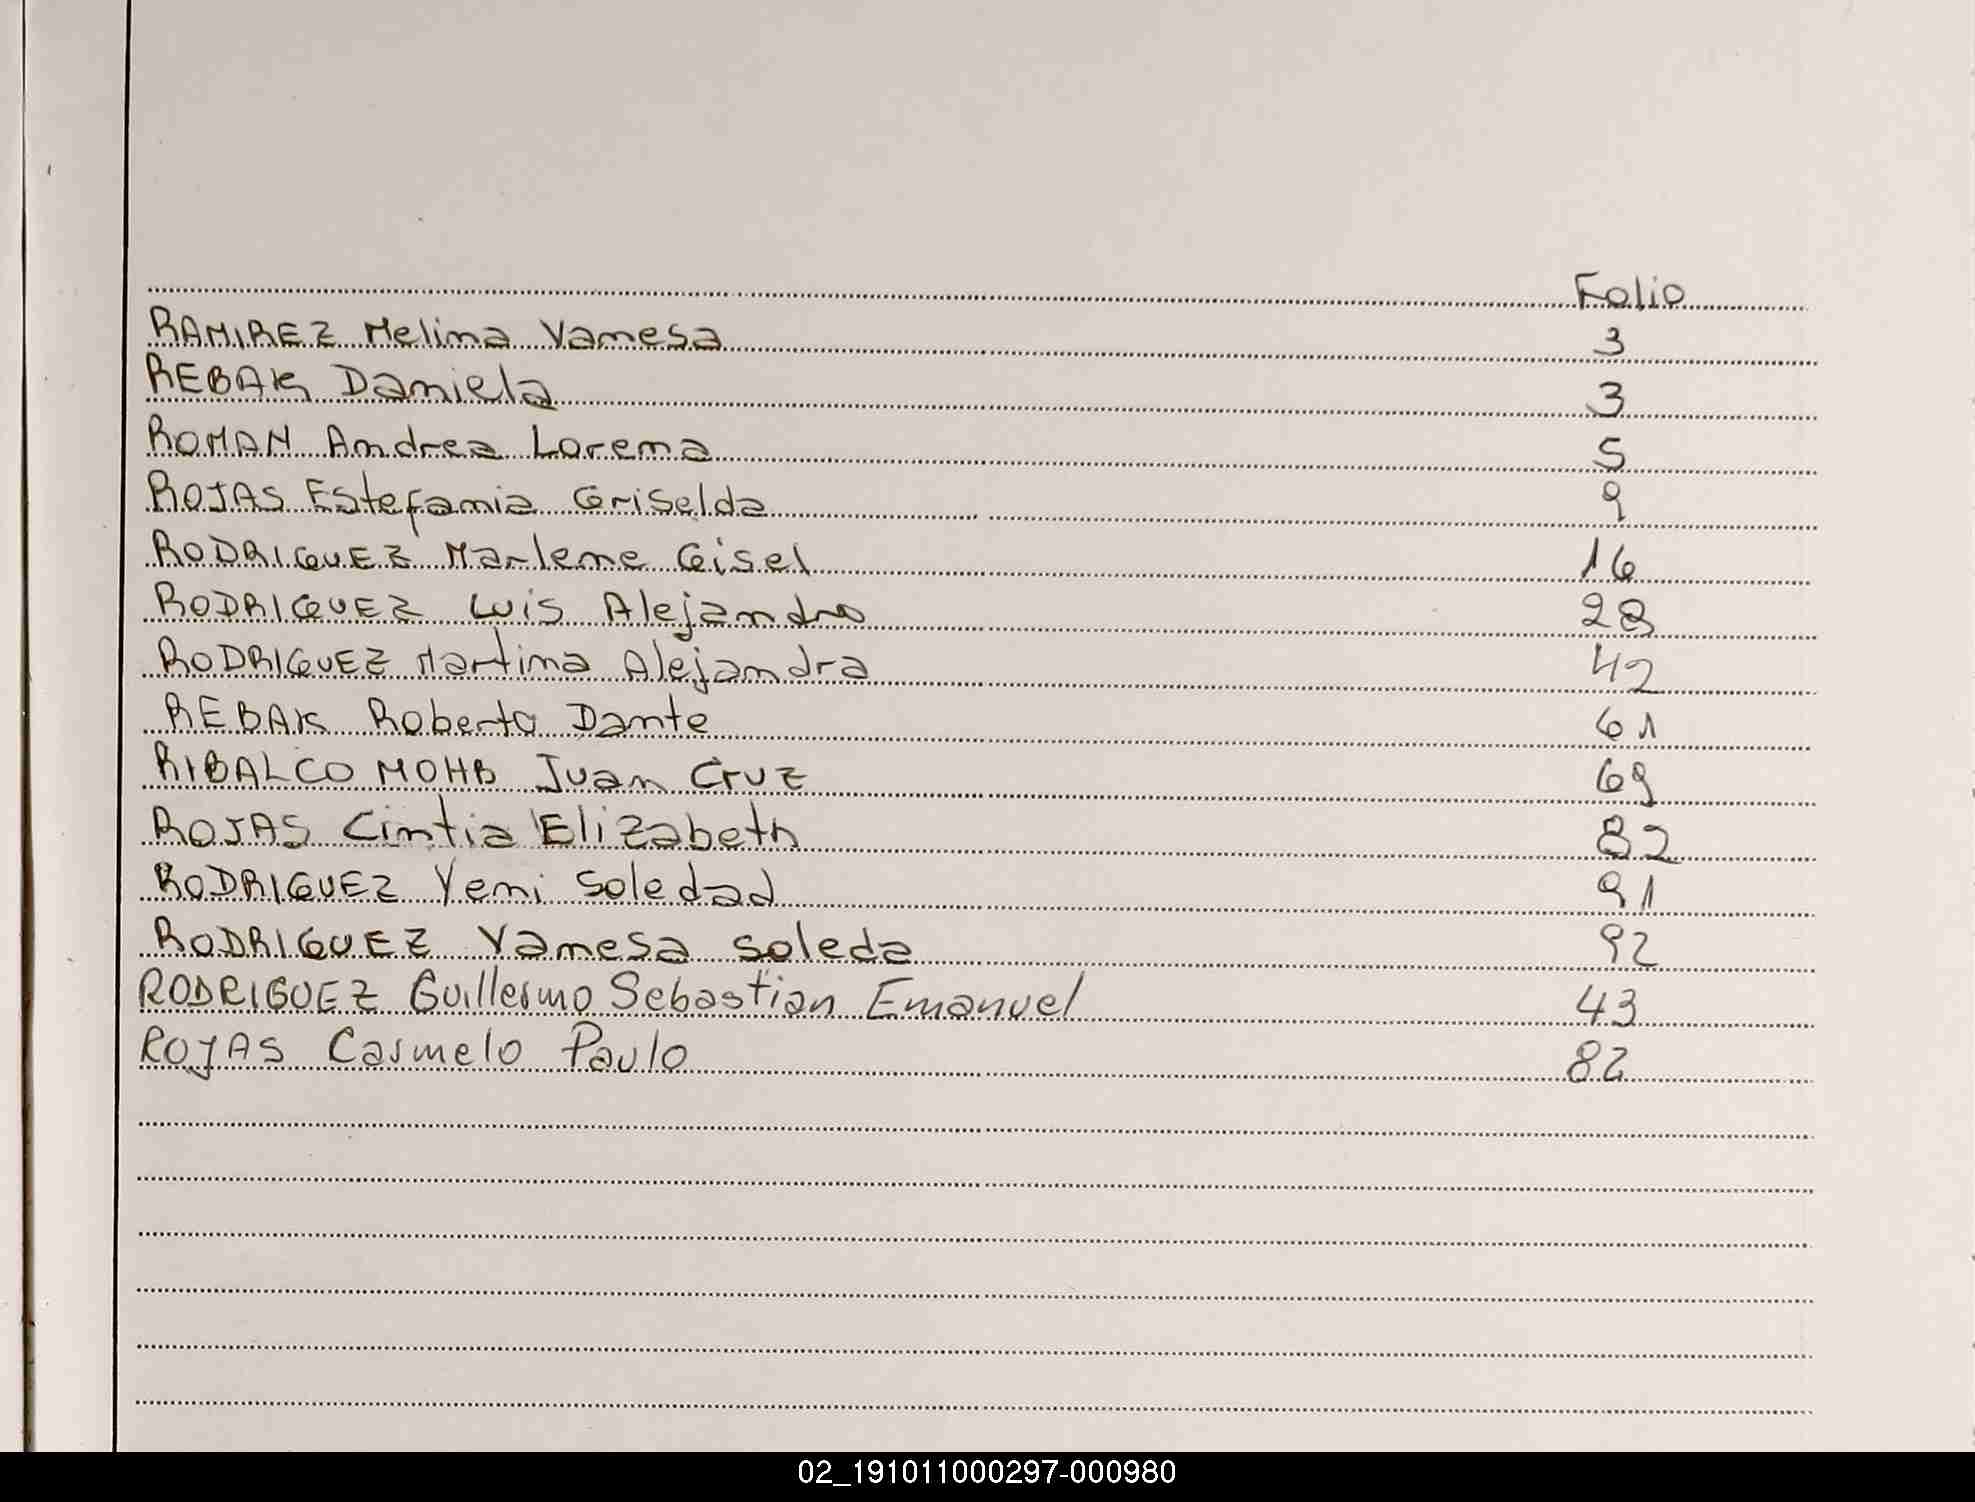 Folio
RAMIREZ Melina Vanesa 3
REBAK Daniela 3
ROMAN Andrea Lorena 5
ROJAS Estefania Griselda 9
RODRIGUEZ Marlene Gisel 16
RODRIGUEZ Luis Alejandro 28
RODRIGUEZ Martina Alejandra 42
REBAK Roberto Dante 61
RIBALCO MOHB Juan Cruz 69
ROJAS Cintia Elizabeth 82
RODRIGUEZ Yeni Soledad 91
RODRIGUEZ Vanesa Soleda 92
RODRIGUEZ Guillermo Sebastian Emanuel 43
ROJAS Carmelo Paulo 82
02_191011000297-000980